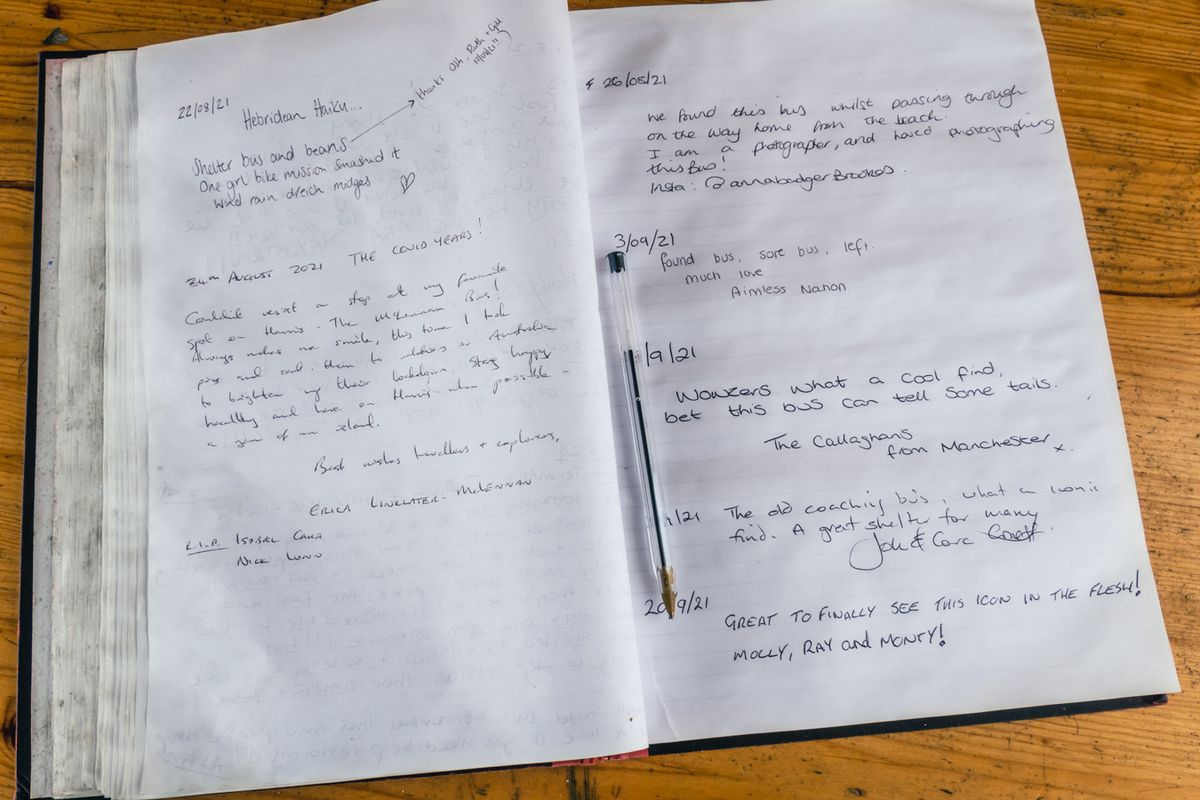 22/08/21
Hebridean Haiku...
thanks Osh, Ruth + Gill
Shelter bus and beans
One grl bike mission smashed it
Wind rain dreich midges ♡
24TH AUGUST 2021 THE COVID YEARS!
Couldn't resist a stop at my favourite
spot on Harris - The McLennan Bus!
Always makes me smile, this time I took
pics and sent them to relations in Australia
to brighten up their lockdown. Stay happy
healthy and live on Harris when possible -
a gem of an island.
Best wishes travellers + explorers,
ERICA LINKLATER-McLENNAN
R.I.P. ISOBAL
NICK LUNN
26/08/21
We found this bus whilst passing through
on the way home from the beach.
I am a photographer, and loved photographing
this Bus!
Insta: @annabadgerBrookes.
3/09/21
found bus, sore bus, left.
much love
Aimless Nation
/9/21
Wowzers what a cool find,
bet this bus can tell some tails.
The Callaghans
from Manchester x.
/21 The old coaching bus, what a iconic
find. A great shelter for many
20 9/21
GREAT TO FINALLY SEE THIS ICON IN THE FLESH!
MOLLY, RAY and MONTY!